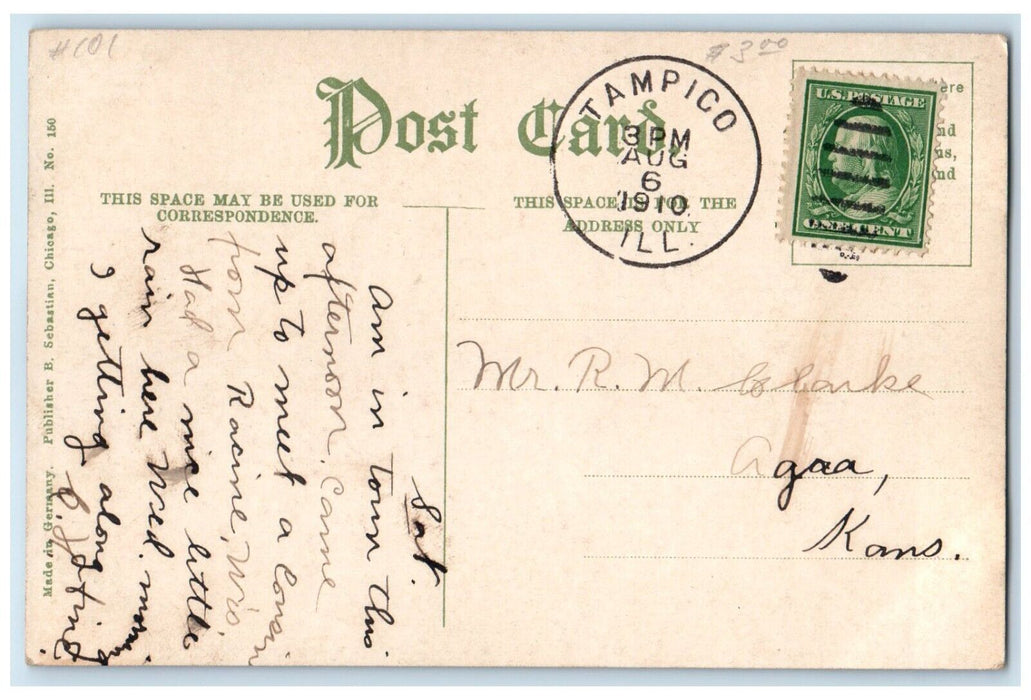 #101
$3.00
Post Card.
TAMPICO
3 PM
AUG
6
1910
ILL.
U.S. POSTAGE
ere
nd
ns,
nd
THIS SPACE MAY BE USED FOR
CORRESPONDENCE.
THIS SPACE IS FOR THE
ADDRESS ONLY
Sat.
Am in town this
afternoon. Came
up to meet a Cousin
from Racine, Wis
Had a nice little
rain here Wed. morning
getting along
Mr. R. M. Clarke
Agaa,
Kans.
Made in Germany. Publisher B. Sebastian, Chicago, Ill. No. 150